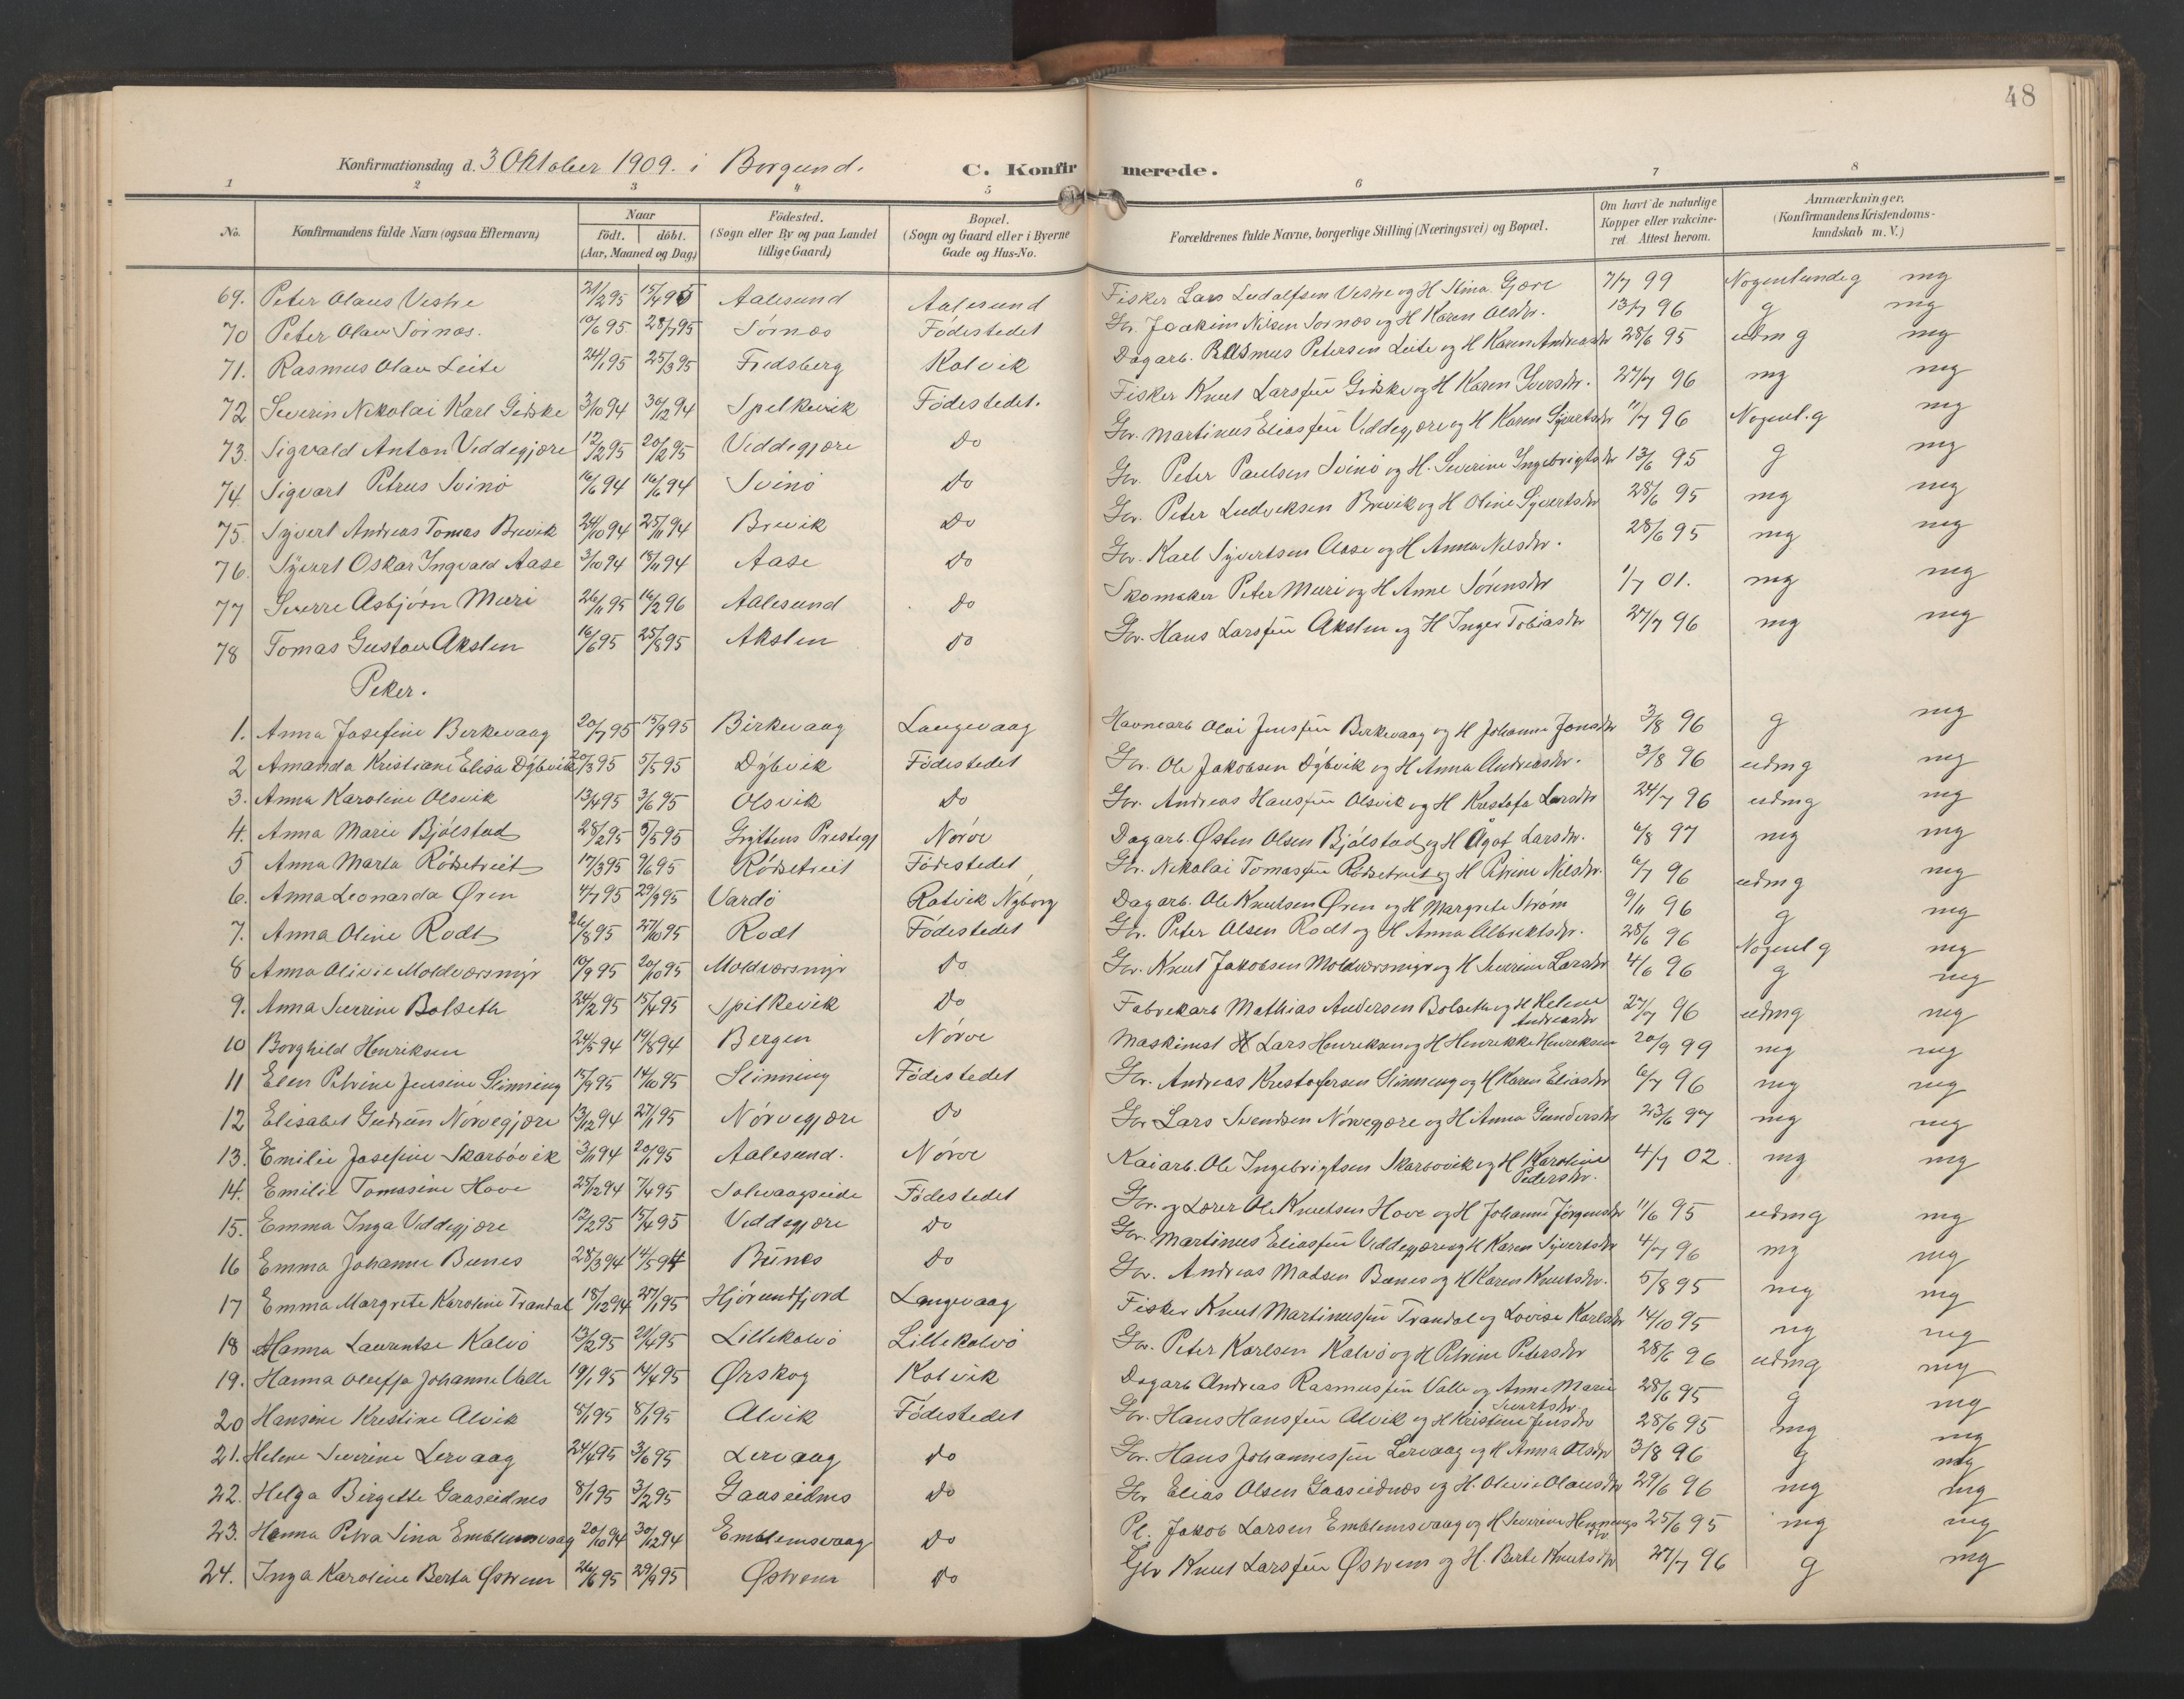 48
Konfirmationsdag d. 3 Oktober 1909. i Borgund. C. Konfirmerede.
1 2 3 4 5 6 7 8
No. Konfirmandens fulde Navn (ogsaa Efternavn) Naar födt. döbt. (Aar, Maaned og Dag) Födested. (Sogn eller By og paa Landet tillige Gaard) Bopæl. (Sogn og Gaard eller i Byerne Gade og Hus-No. Forældrenes fulde Navne, borgerlige Stilling (Næringsvei) og Bopæl. Om havt de naturlige Kopper eller vakcineret. Attest herom. Anmærkninger. (Konfirmandens Kristendomskundskab m. V.)
69. Peter Olaus Veshe 21/2 95 15/4 95 Aalesund Aalesund Fisker Lars Ludolfsen Veshe og H Stina Gjære 7/7 99 Nogenlunde g mg
70 Peter Olav Sörnæs. 10/6 95 28/7 95 Sörnæs Födestedet Gr. Joakim Nilsen Sornæs og H Karen Olsdtr. 13/7 96 g mg
71. Rasmus Olav Leite 24/1 95 25/3 95 Fredsberg Kalvik Dagarb. Rasmus Petersen Leite og H Karen Andreasdtr 28/6 95 udm g mg
72 Severin Nikolai Karl Giske 3/10 94 30/12 94 Spelkevik Födestedet. Fisker Knut Larsen Giske og H Karen Iversdtr. 27/7 96 mg mg
73. Sigvald Anton Veddegjære 12/2 95 20/2 95 Veddegjære Do Gr. Martinus Eliassen Veddegjære og H Karen Sjvertsdtr 11/7 96 Nogenl. g mg
74. Sigvart Petrus Svinö 16/6 94 16/6 94 Svinö Do Gr. Peter Paulsen Svinö og H. Severine Ingebrigtsdtr 13/6 95 g mg
75. Syvert Andreas Tomas Brevik 24/10 94 25/11 94 Brevik Do Gr. Peter Ludviksen Brevik og H Oline Syvertsdtr 28/6 95 mg mg
76. Syvert Oskar Ingvald Aase 3/10 94 18/11 94 Aase Do Gr. Karl Syvertsen Aase og H Anna Nilsdtr. 28/6 95 mg mg
77 Sverre Asbjörn Muri 26/11 95 16/2 96 Aalesund Do Skomaker Peter Muri og H Anne Sörensdtr 1/7 01. mg mg
78 Tomas Gustav Akslen 16/6 95 25/8 95 Akslen Do Gr. Hans Larssen Akslen og H Inger Tobiasdtr 27/7 96 mg mg
Piker.
1. Anna Josefine Berkevaag 20/7 95 15/9 95 Birkevaag Langevaag Havnearb Olai Jenssen Berkevaag og H Johanne Jonsdtr 3/8 96 g mg
2 Amanda Kristiane Elisa Dybvik 20/3 95 5/5 95 Dybvik Födestedet Gr. Ole Jakobsen Dybvik og H Anna Andreasdtr. 3/8 96 udm g mg
3. Anna Karoline Olsvik 13/4 95 3/6 95 Olsvik Do Gr. Andreas Hanssen Olsvik og H Kristofa Larsdtr 24/7 96 udmg mg
4. Anna Marie Bjölstad 28/2 95 5/5 95 Gryttens Prestegj Nörve Dagarb. Østen Olsen Bjölstad og H Ågot Larsdtr. 6/8 97 mg mg
5 Anna Marta Rödsetreit 17/3 95 9/6 95 Rödsetreit Födestedet Gr. Nikolai Tomassen Rödsetreit og H Petrine Nilsdtr. 6/7 96 udm g mg
6. Anna Leonarda Øren 4/7 95 29/9 95 Vardö Ratvik Nyborg Dagarb. Ole Knutsen Øren og H Margrete Ström 9/11 96 g mg
7. Anna Oline Rödt 26/8 95 27/10 95 Rodt Födestedet Gr. Peter Olsen Rodt og H Anna Albrektsdtr. 28/6 96 Nogenl g mg
8 Anna Olivie Moldværsmyr 10/9 95 20/10 95 Moldværsmyr Do Gr. Knut Jakobsen Moldværsmyr og H Severine Larsdtr 4/6 96 g mg
9. Anna Severine Bolseth 24/2 95 15/4 95 Spilkevik Do Fabrikarb Mathias Andersen Bolseth og H Helene Andreasdtr 27/7 96 udmg mg
10 Borghild Henriksen 24/5 94 19/8 94 Bergen Nörve Maskinist Lars Henriksen og H Henrikke Henriksen 20/9 99 mg mg
11 Elen Petrine Jensine Slinning 15/9 95 14/10 95 Slinning Födestedet Gr. Andreas Kristofersen Slinning og H Karen Eliasdtr 6/7 96 mg mg
12 Elisabet Gudrun Nörvegjære 13/12 94 27/1 95 Nörvegjære Do Gr Lars Svendsen Nörvegjære og H Anna Gundersdtr 23/6 97 mg mg
13. Emilie Josefine Skarbövik 3/11 94 20/1 95 Aalesund. Nörve Kaiarb. Ole Ingebrigtsen Skarbövik og H Karoline Pedersdtr. 4/7 02. mg mg
14. Emilie Tomasine Hove 25/12 94 7/4 95 Solvaagseide Födestedet Gr. og Lærer Ole Knutsen Hove og H Johanne Jörgensdtr 11/6 95 udmg mg
15. Emma Inga Veddegjære 12/2 95 15/4 95 Veddegjære Do Gr. Martinus Eliassen Veddegjære og H Karen Syvertsdtr 4/7 96 mg mg
16 Emma Johanne Bunes 28/3 94 14/5 94 Bunes Do Gr. Andreas Madsen Bunes og H Karen Knutsdtr. 5/8 95 mg mg
17 Emma Margrete Karoline Trandal 18/12 94 27/1 95 Hjörundfjord Langevaag Fisker Knut Martinussen Trandal og Lovise Karlsdtr 14/10 95 ng mg
18 Hanna Laurentse Kalvö 13/2 95 21/4 95 Lillekalvö Lillekalvö Gr. Peter Karlsen Kalvö og H Petrine Petersdtr 28/6 96 udmg mg
19. Hanna Oleffa Johanne Valle 19/1 95 14/4 95 Ørskog Kalvik Dagarb Andreas Rasmussen Valle og Anne Marie Sivertsdtr. 28/6 95 g mg
20 Hansine Kristine Alvik 8/1 95 8/1 95 Alvik Födestedet Gr. Hans Hanssen Alvik og H Kristine Jensdtr 28/6 95 mg mg
21. Helene Severine Lervaag 24/4 95 3/6 95 Lervaag Do Gr. Hans Johannessen Lervaag og H Anna Olsdtr 3/8 96 g mg
22. Helga Birgette Gaaseidnes 8/1 95 3/2 95 Gaaseidnes Do Gr Elias Olsen Gaaseidnæs og H. Olivie Olausdtr 29/6 96 mg mg
23. Hanna Petra Sina Emblemsvaag 20/10 94 30/12 94 Emblemsvaag Do Pl. Jakob Larsen Emblemsvaag og H Severine Hennings dtr. 25/6 95 mg mg
24. Inga Karoline Berta Østrem 26/6 95 29/9 95 Østrem Do Gbr Knut Larssen Østrem og H. Berte Knutsdtr 27/7 96 g mg